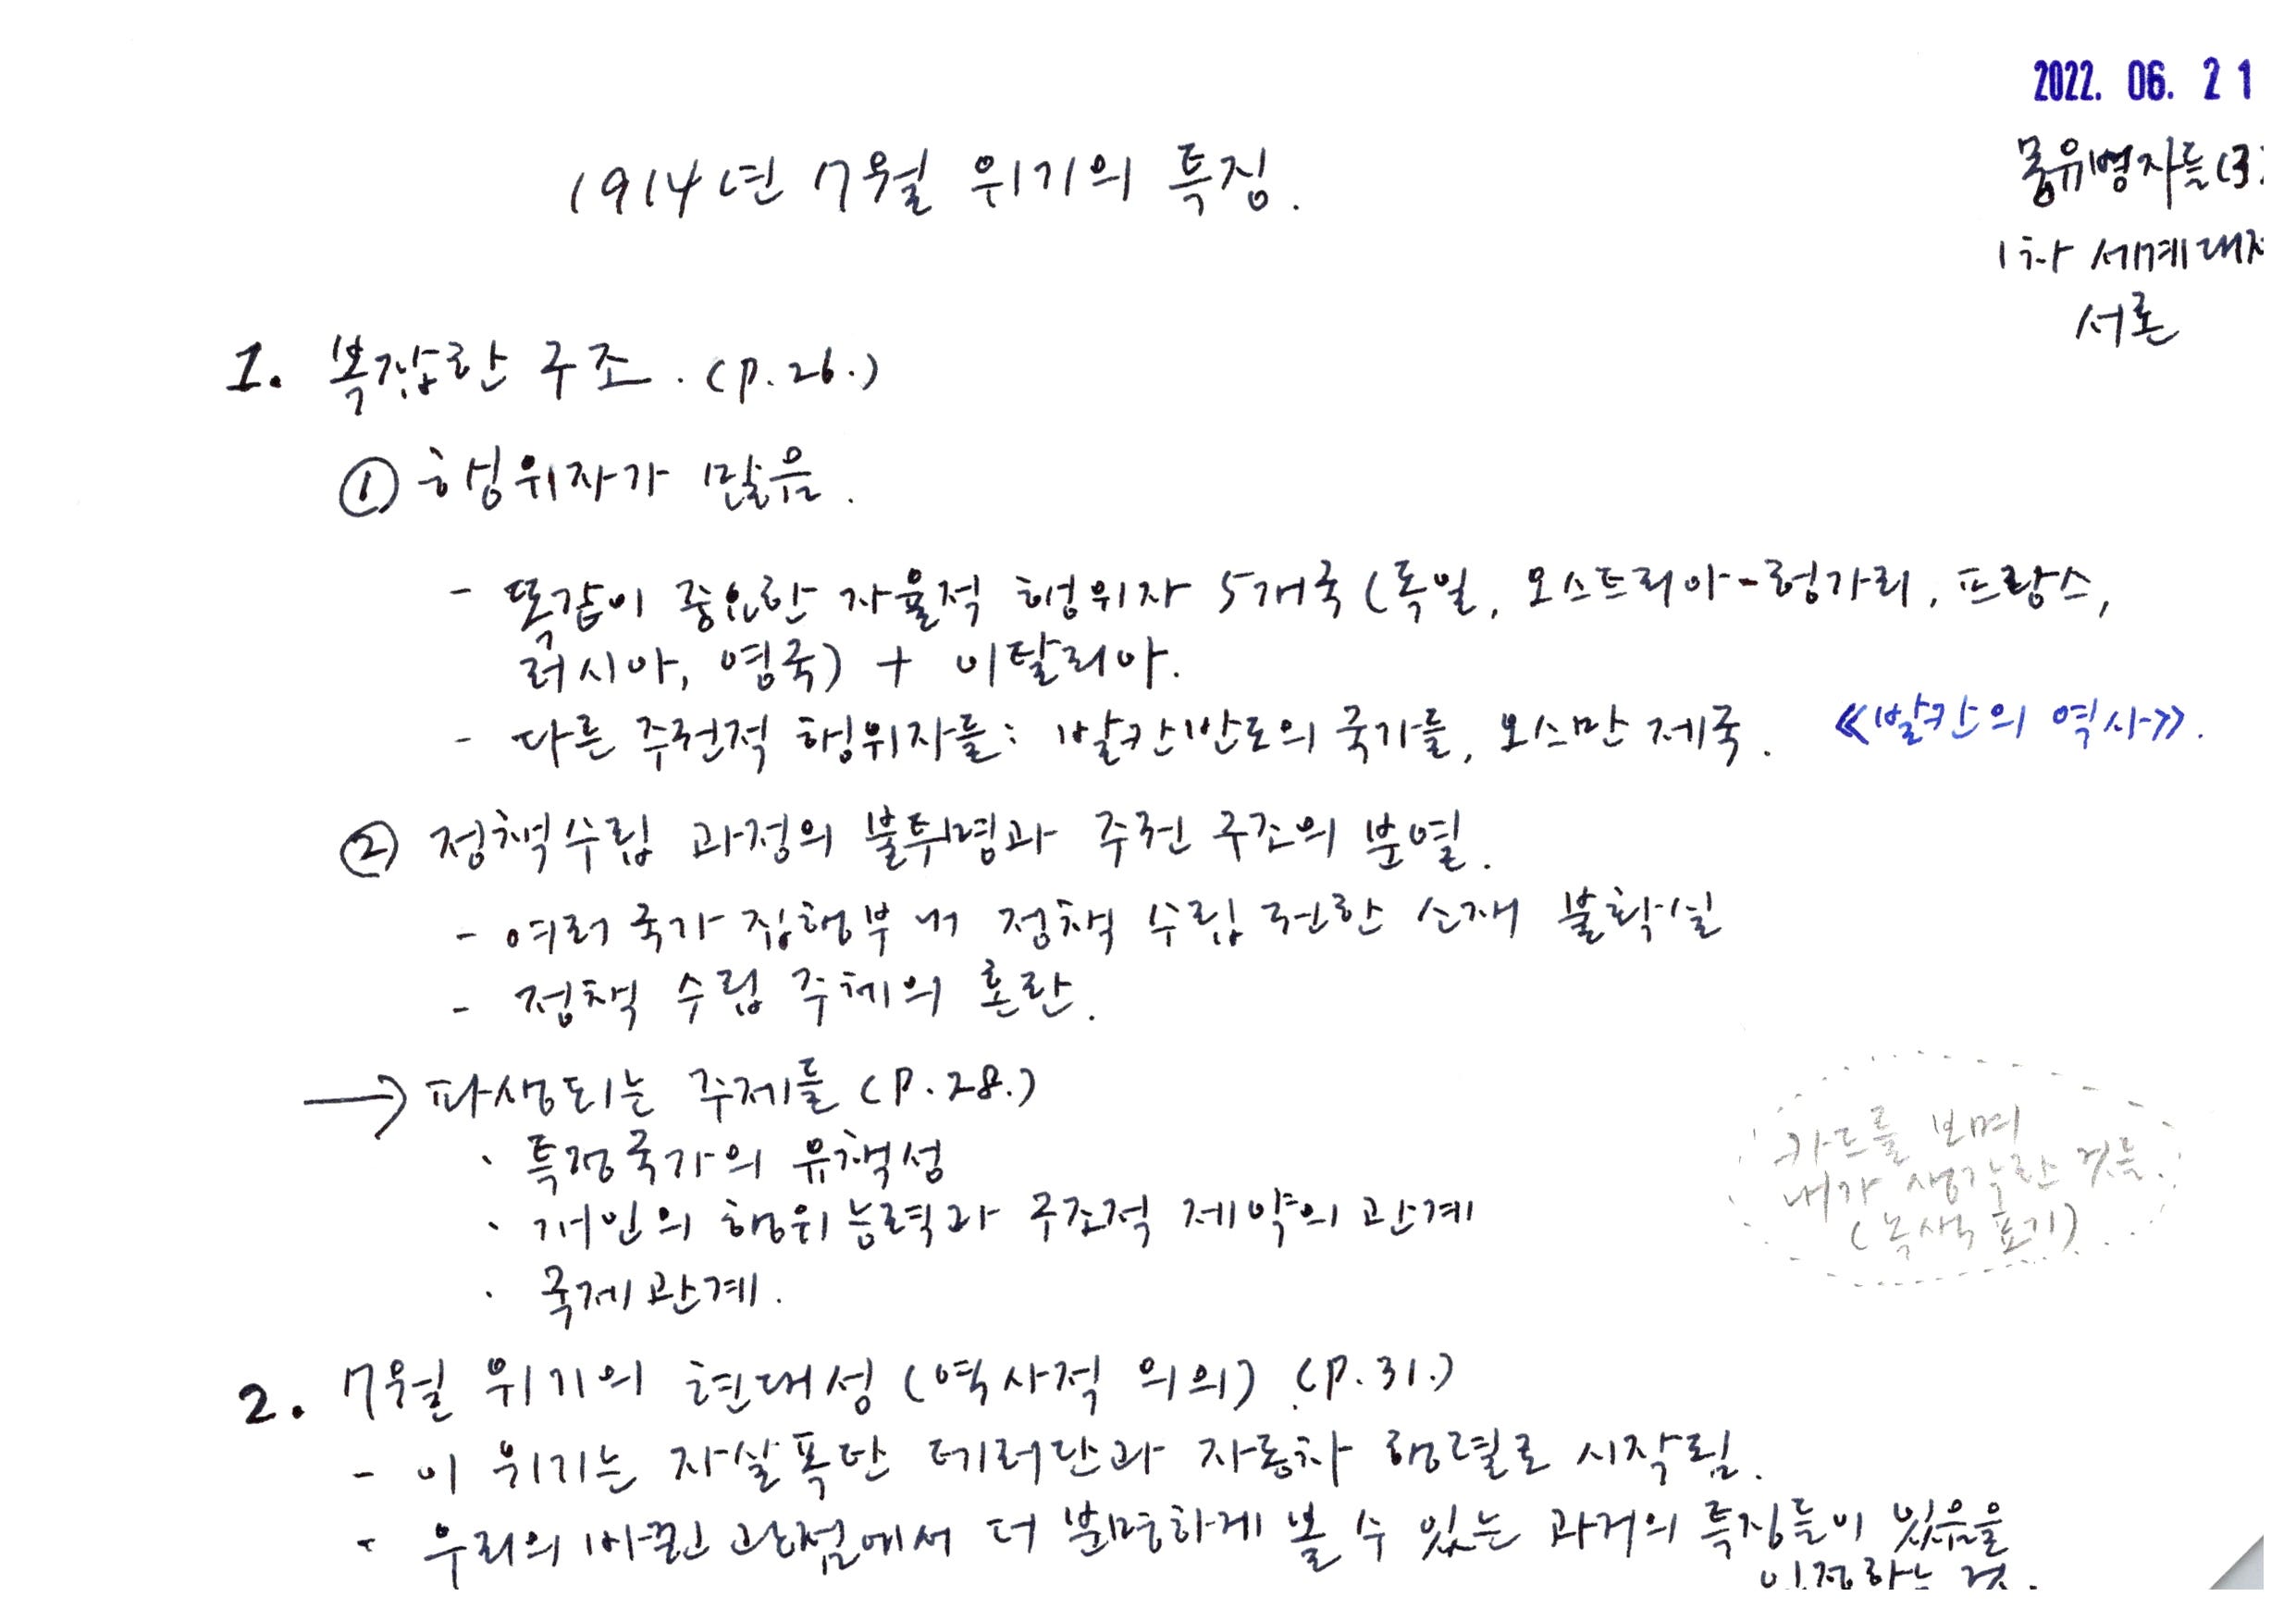 2022. 06. 21
몽유병자들(3
1차 세계대
서론
1914년 7월 위기의 특징.
1. 복잡한 구조. (p.26.)
① 행위자가 많음.
- 똑같이 중요한 자율적 행위자 5개국 (독일, 오스트리아-헝가리, 프랑스,
러시아, 영국) + 이탈리아.
- 다른 주권적 행위자들: 발칸반도의 국가들, 오스만 제국. 《발칸의 역사》.
② 정책수립 과정의 불투명과 주권 구조의 분열.
- 여러 국가 집행부 내 정책 수립 권한 소재 불확실
- 정책 수립 주체의 혼란.
→ 파생되는 주제들 (p.28.)
· 특정국가의 유책성
· 개인의 행위능력과 구조적 제약의 관계
· 국제관계.
카드를 보며
내가 생각한 것들
(녹색 표기)
2. 7월 위기의 현대성 (역사적 의의) (p.31.)
- 이 위기는 자살폭탄 테러단과 자동차 행렬로 시작됨.
- 우리의 바뀐 관점에서 더 분명하게 볼 수 있는 과거의 특징들이 있음을
인정하는 것.